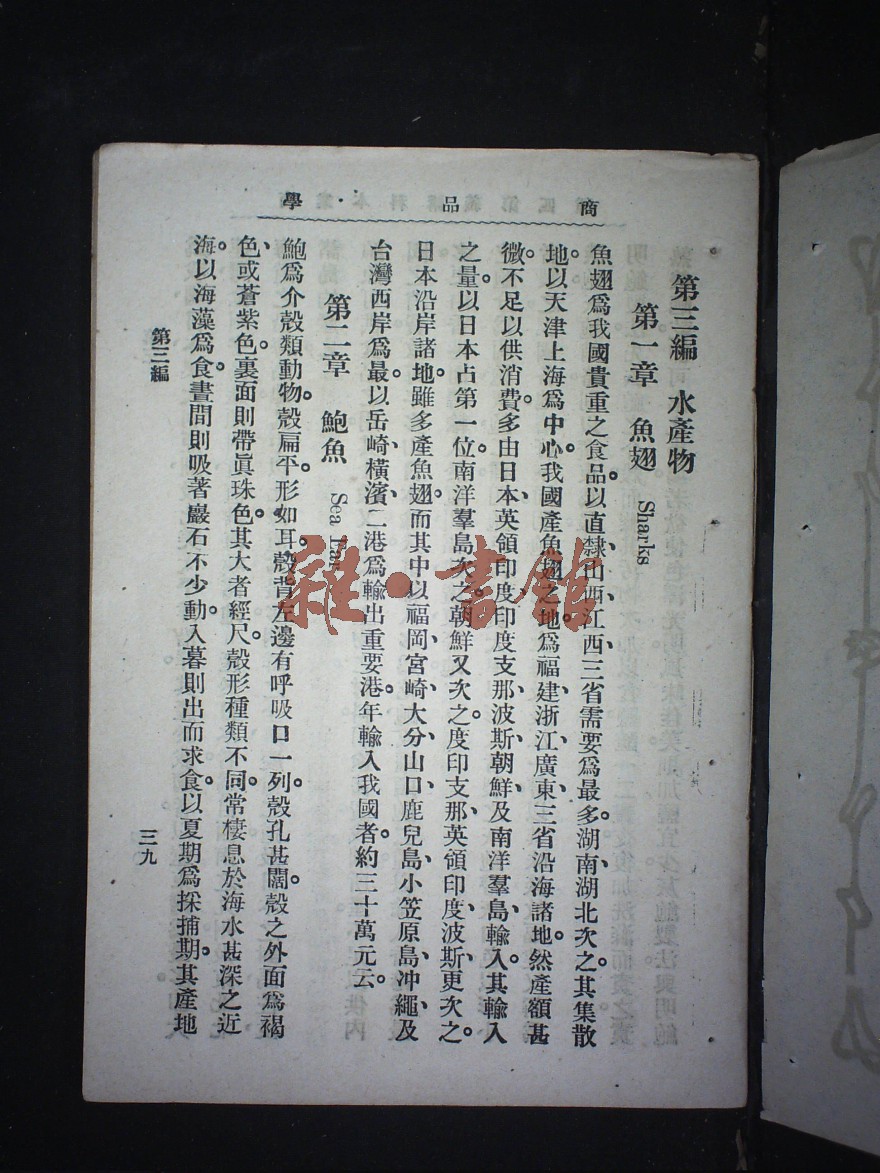 商品學
第三編 水產物
第一章 魚翅 Sharks
魚翅爲我國貴重之食品。以直隸、山西、江西三省需要爲最多。湖南湖北次之。其集散
地。以天津上海爲中心。我國產魚翅之地。爲福建、浙江、廣東三省沿海諸地。然產額甚
微。不足以供消費。多由日本、英領印度、印度支那、波斯、朝鮮、及南洋羣島、輸入。其輸入
之量。以日本占第一位。南洋羣島次之。朝鮮又次之。度印支那、英領印度、波斯、更次之。
日本沿岸諸地。雖多產魚翅。而其中以福岡、宮崎、大分、山口、鹿兒島、小笠原島、冲繩、及
台灣西岸爲最。以岳崎、橫濱、二港爲輸出重要港。年輸入我國者。約三十萬元云。
第二章 鮑魚 Sea
鮑爲介殼類動物。殼扁平。形如耳。殼背左邊有呼吸口一列。殼孔甚闊。殼之外面爲褐
色、或蒼紫色。裏面則帶眞珠色。其大者經尺。殼形種類不同。常棲息於海水甚深之近
海。以海藻爲食。晝間則吸著巖石不少動。入暮則出而求食。以夏期爲採捕期。其產地
第三編
三九
雜·書館